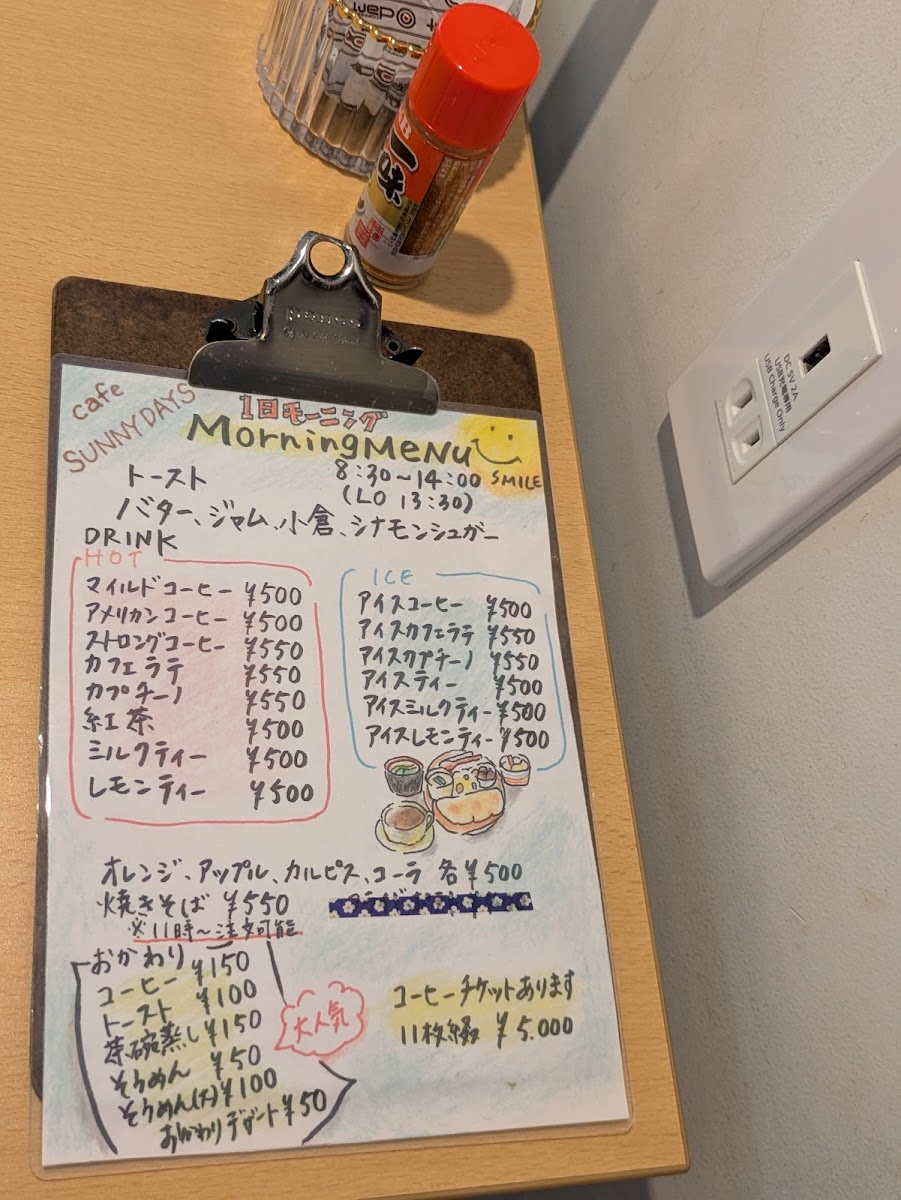 一味
DC 5V 2A
USB充電専用
USB Charge Only
cafe
SUNNYDAYS
1日モーニング
MorningMENU
SMILE
トースト
8:30～14:00
(LO 13:30)
バター、ジャム、小倉、シナモンシュガー
DRINK
HOT
マイルドコーヒー ¥500
アメリカンコーヒー ¥500
ストロングコーヒー ¥550
カフェラテ ¥550
カプチーノ ¥550
紅茶 ¥500
ミルクティー ¥500
レモンティー ¥500
ICE
アイスコーヒー ¥500
アイスカフェラテ ¥550
アイスカプチーノ ¥550
アイスティー ¥500
アイスミルクティー ¥500
アイスレモンティー ¥500
オレンジ、アップル、カルピス、コーラ 各¥500
焼きそば ¥550
※11時～注文可能
おかわり
コーヒー ¥150
トースト ¥100
茶碗蒸し ¥150
そうめん ¥50
そうめん(大) ¥100
おかわりデザート ¥50
大人気
コーヒーチケットあります
11枚綴 ¥5.000